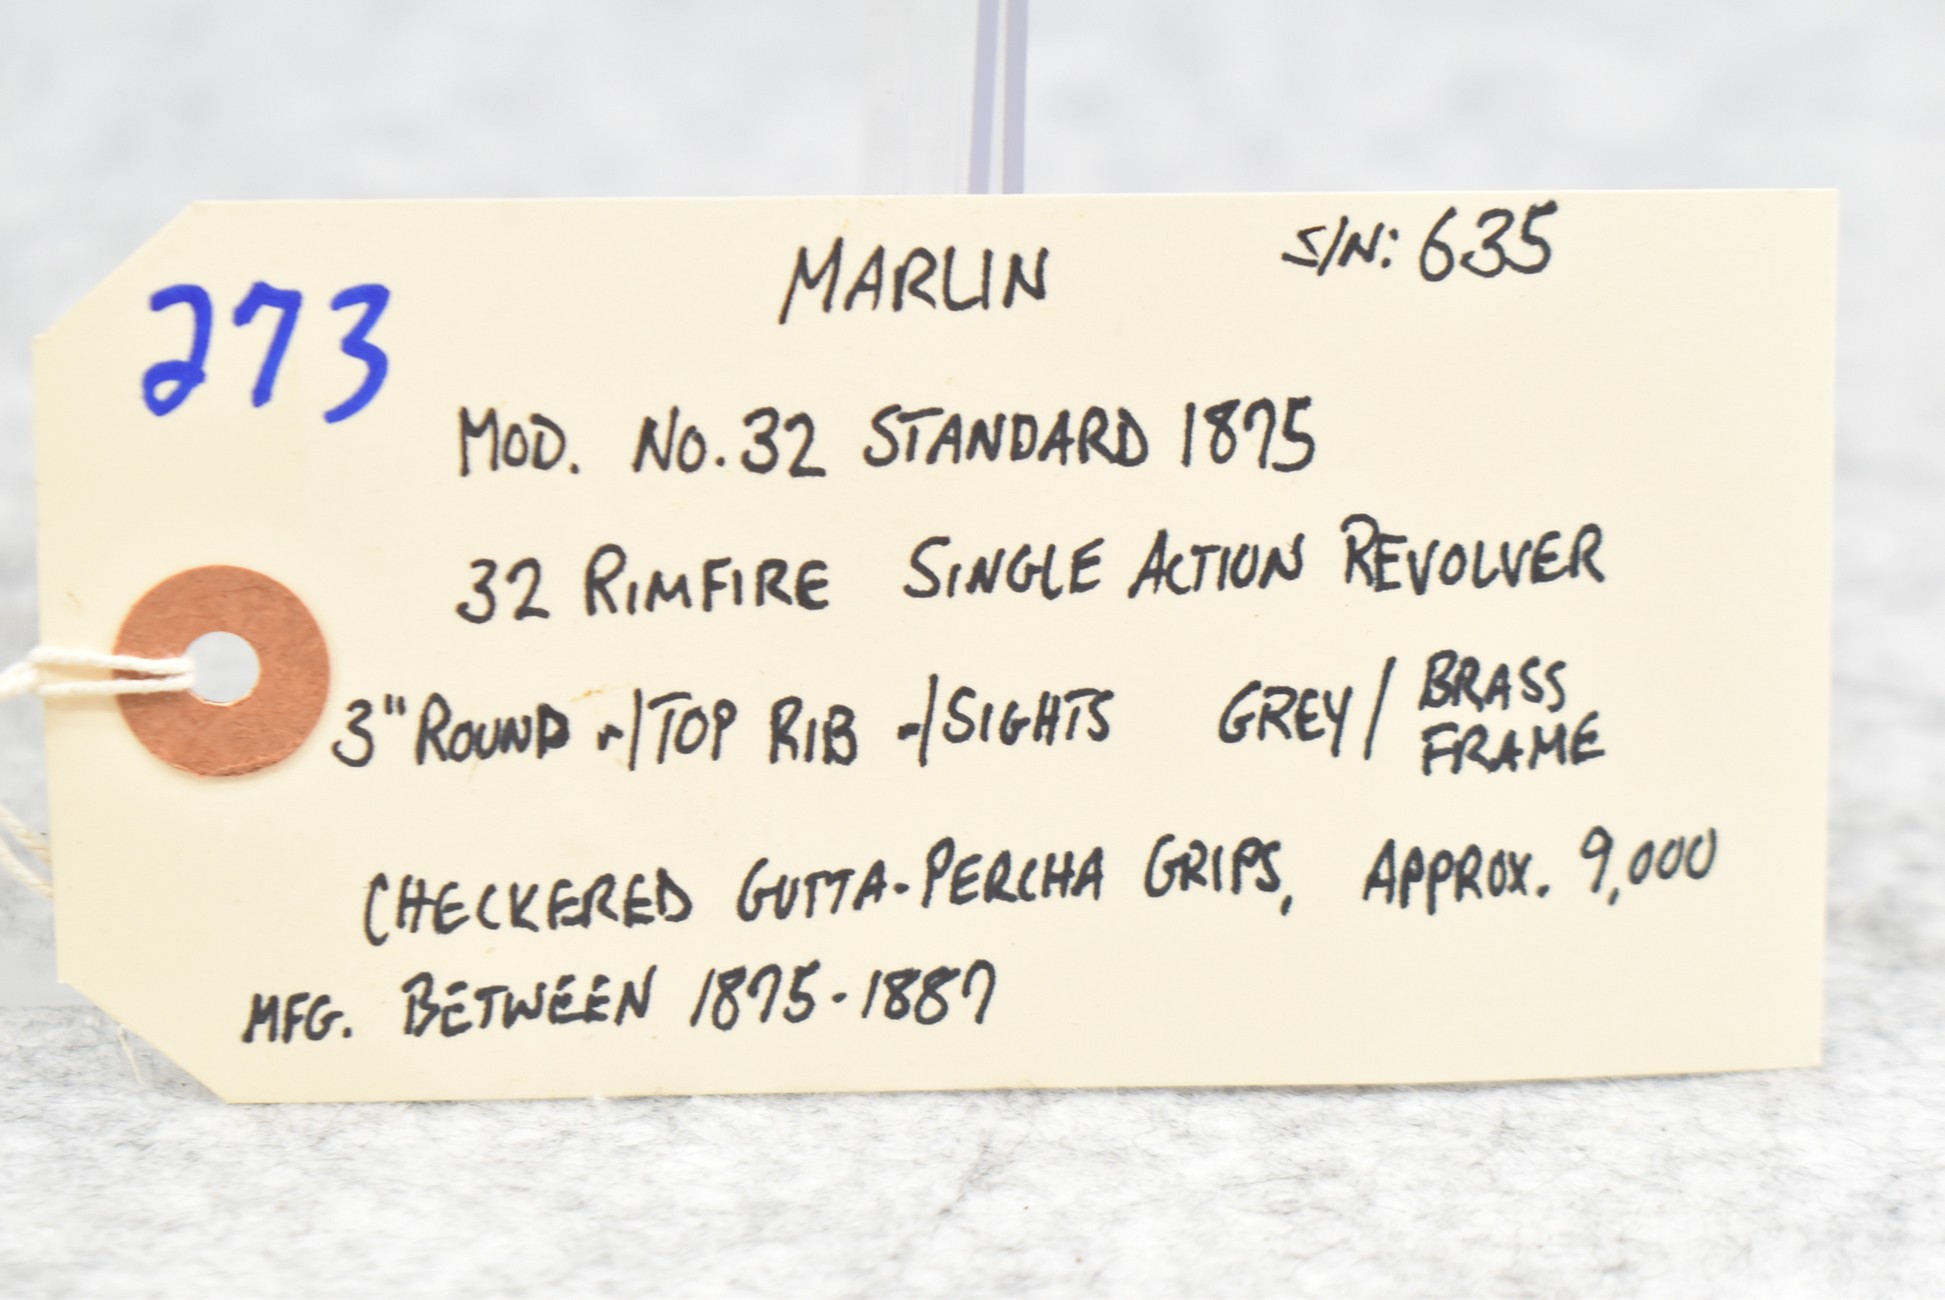 MARLIN S/N: 635
273
MOD. NO. 32 STANDARD 1875
32 RIMFIRE SINGLE ACTION REVOLVER
3" ROUND w/TOP RIB w/SIGHTS GREY/BRASS FRAME
CHECKERED GUTTA-PERCHA GRIPS, APPROX. 9,000
MFG. BETWEEN 1875-1887